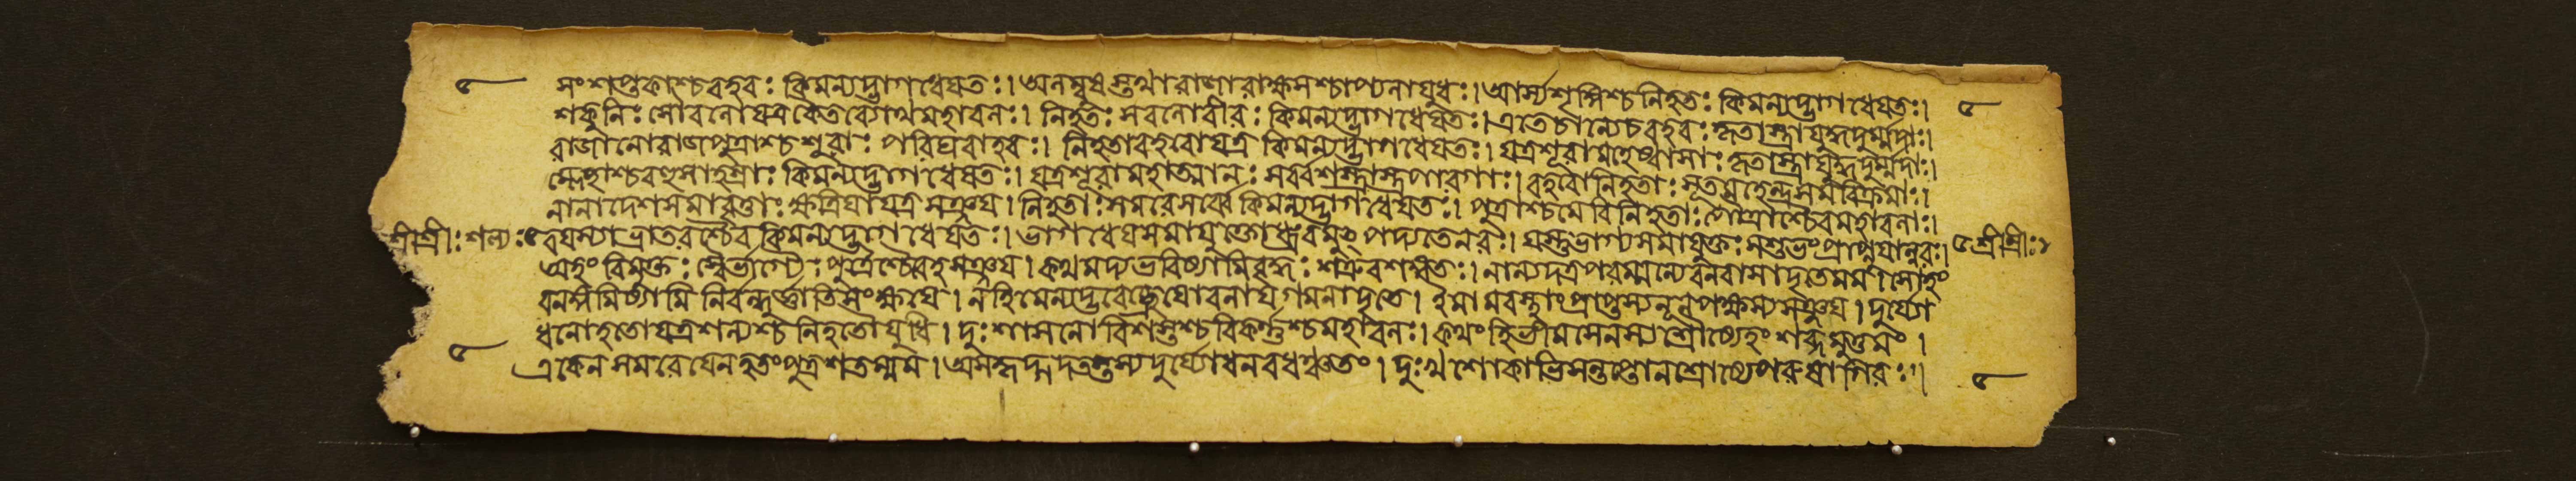 সংশপ্তকাশ্চ বহবঃ কিমন্যদ্ভাগধেয়তঃ। অলম্বুষস্তথা রাজা রাক্ষসশ্চাপ্যলায়ুধঃ। আর্ষ্যশৃঙ্গিশ্চ নিহতঃ কিমন্যদ্ভাগধেয়তঃ।
শকুনিঃ সৌবলো যত্র কৈতব্যোথ মহাবলঃ। নিহতঃ সবলো বীরঃ কিমন্যদ্ভাগধেয়তঃ। এতে চান্যে চ বহবঃ কৃতাস্ত্রা যুদ্ধদুর্ম্মদাঃ।
রাজানো রাজপুত্রাশ্চ শূরাঃ পরিঘবাহবঃ। নিহতা বহবো যত্র কিমন্যদ্ভাগধেয়তঃ। যত্র শূরা মহেষ্বাসাঃ কৃতাস্ত্রা যুদ্ধদুর্ম্মদাঃ।
ম্লেচ্ছাশ্চ বহুসাহস্রাঃ কিমন্যদ্ভাগধেয়তঃ। যত্র শূরা মহাত্মানঃ সর্ব্বশস্ত্রাস্ত্রপারগাঃ। বহবো নিহতাঃ সূত মহেন্দ্রসমবিক্রমাঃ।
নানাদেশসমাবৃত্তাঃ ক্ষত্রিয়া যত্র সঞ্জয়। নিহতাঃ সমরে সর্ব্বে কিমন্যদ্ভাগধেয়তঃ। পুত্রাশ্চ মে বিনিহতাঃ পৌত্রাশ্চৈব মহাবলাঃ।
শ্রীশ্রীঃ শল্যঃ ৫ বয়স্যা ভ্রাতরশ্চৈব কিমন্যদ্ভাগধেয়তঃ। ভাগধেয়সমাযুক্তো ধ্রুবমুৎপদ্যতে নরঃ। যস্তু ভাগ্যসমাযুক্তঃ স শুভং প্রাপ্নুয়ান্নরঃ। ৫ শ্রীশ্রীঃ
অহং বিমুক্তঃ স্বৈর্ভাগ্যৈঃ পুত্রৈশ্চৈবেহ সঞ্জয়। কথমদ্য ভবিষ্যামি বৃদ্ধঃ শত্রুবশঙ্গতঃ। নান্যদত্র পরম্মন্যে বনবাসাদৃতে মম। সোহং
বনঙ্গমিষ্যামি নির্বন্ধুর্জ্ঞাতিসংক্ষয়ে। ন হি মেন্যদ্ভবেচ্ছ্রেয়ো বনায় গমনাদৃতে। ইমামবস্থাং প্রাপ্তস্য লূনপক্ষস্য সঞ্জয়। দুর্য্যো
ধনো হতো যত্র শল্যশ্চ নিহতো যুধি। দুঃশাসনো বিশস্তশ্চ বিকর্ণ্ণশ্চ মহাবলঃ। কথং হি ভীমসেনস্য শ্রোষ্যেহং শব্দমুত্তমং।
একেন সমরে যেন হতং পুত্রশতম্মম। অসকৃদ্বদতস্তস্য দুর্য্যোধনবধম্বৃতং। দুঃখশোকাভিসন্তপ্তো ন শ্রোষ্যে পরুষা গিরঃ।